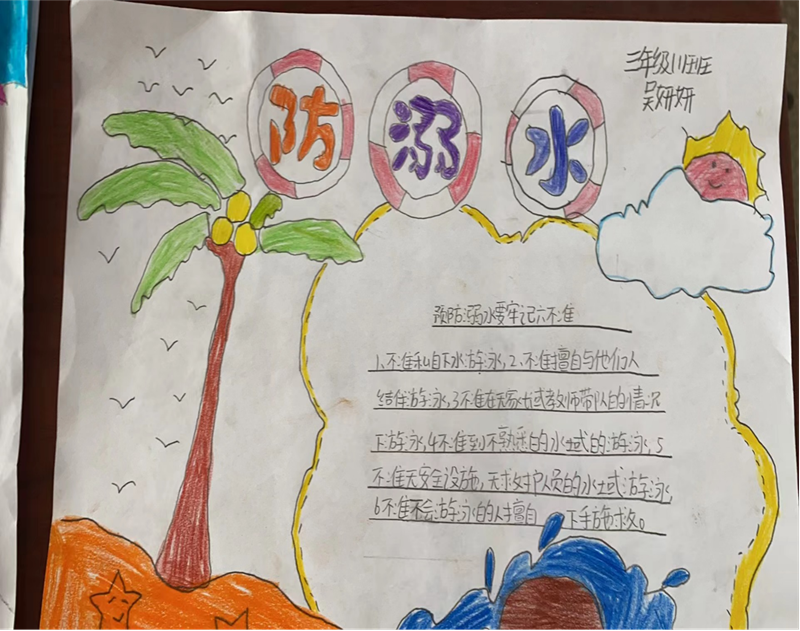 防溺水
三年级(1)班
吴妍妍
预防溺水要牢记六不准
1、不准私自下水游泳,2、不准擅自与他们人
结伴游泳,3不准在无家长或教师带队的情况
下游泳,4不准到不熟悉的水域的游泳,5
不准无安全设施,无求护人员的水域游泳,
6不准不会游泳的人擅自 下手施救。